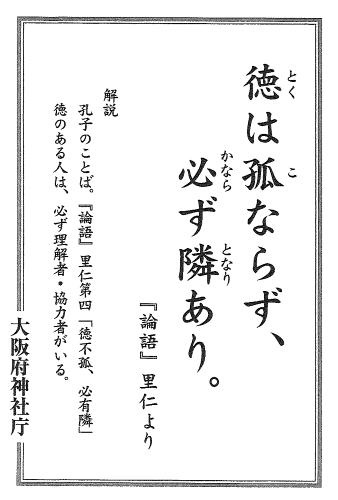 徳は孤ならず、
とく
こ
必ず隣あり。
かなら
となり
『論語』里仁より
解説
孔子のことば。『論語』里仁第四「徳不孤、必有隣」
徳のある人は、必ず理解者・協力者がいる。
大阪府神社庁